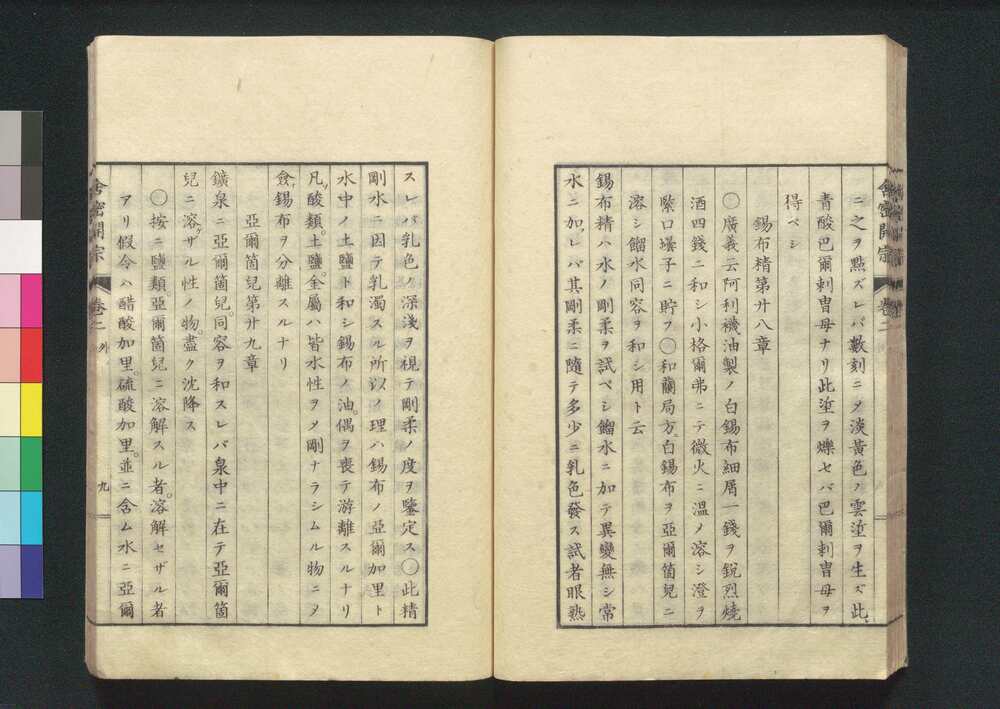 ニ之ヲ點ズレバ數刻ニヲ淡黃色ノ雲塗ヲ生ズ此
青酸巴爾刺冑母ナリ此塗ヲ爍セバ巴爾刺冑母ヲ
得ベシ
錫布精第廿八章
○廣義云阿利襪油製ノ白錫布細屑一錢ヲ銳烈燒
酒四錢ニ和シ小格爾弗ニテ微火ニ溫メ溶シ澄ヲ
緊口壜子ニ貯フ○和蘭局方白錫布ヲ亞爾箇兒ニ
溶シ餾水同容ヲ和シ用ト云
錫布精ハ水ノ剛柔ヲ試ベシ餾水ニ加テ異變無シ常
水ニ加レバ其剛柔ニ隨テ多少ニ乳色發ス試者眼熟
舍密開宗 卷二
スレバ乳色ノ深淺ヲ視テ剛柔ノ度ヲ鑒定ス○此精
剛水ニ因テ乳濁スル所以ノ理ハ錫布ノ亞爾加里ト
水中ノ土鹽ト和シ錫布ノ油。偶ヲ喪テ游離スルナリ
凡ソ酸類。土鹽。金屬ハ皆水性ヲメ剛ナラシムル物ニヲ
僉錫布ヲ分離スルナリ
亞爾箇兒第廿九章
鑛泉ニ亞爾箇兒。同容ヲ和スレバ泉中ニ在テ亞爾箇
兒ニ溶ケザル性ノ物。盡ク沈降ス
○按ニ鹽類。亞爾箇兒ニ溶解スル者。溶解セザル者
アリ假令ハ醋酸加里。硫酸加里。並ニ含ム水ニ亞爾
舍密開宗 卷二 外 九